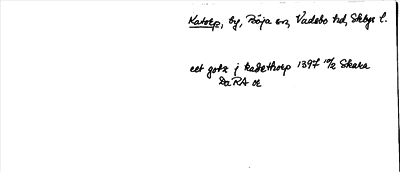 Katorp, by, Böja sn, Vadsbo hd, Skbgs l.
eet gotz j kadethorp 1397 10/2 Skara
DaRA or